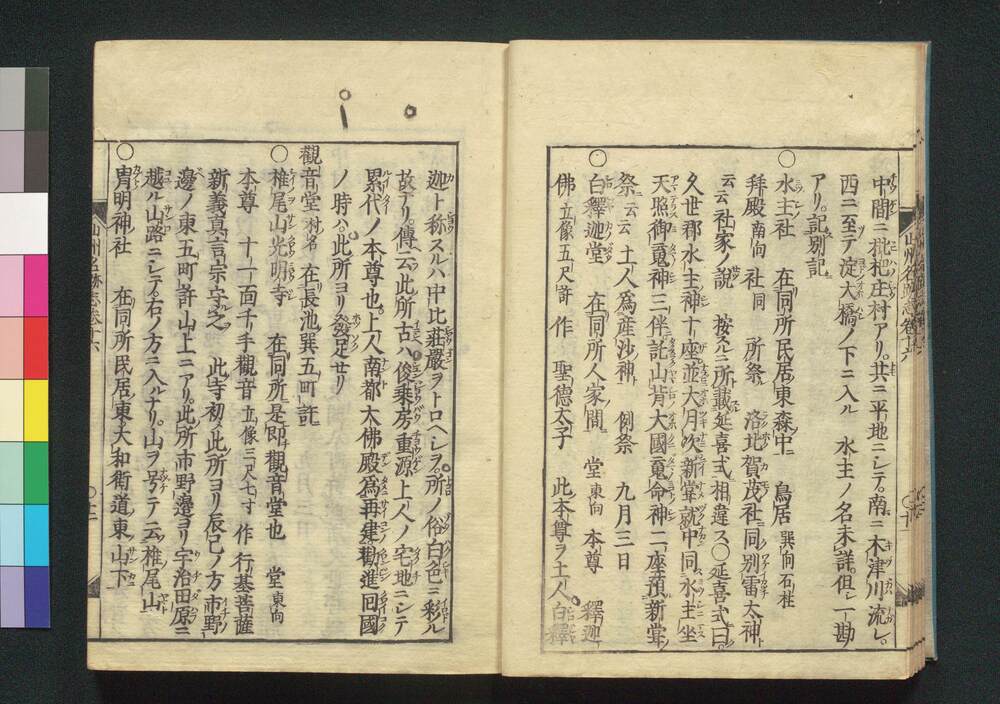 中間ニ枇杷庄村アリ。共ニ平地ニシテ。南ニ木津川流レ。
西ニ至テ淀大橋ノ下ニ入ル 水主ノ名未詳。但シ一勘
アリ。記別記
○水主社 在同所民居東森中ニ 鳥居巽向石柱
拜殿南向 社同 所祭 洛北賀茂社同別雷太神ト
云云社家ノ說 按スルニ所載延喜式相違ス○延喜式曰
久世郡水主神十座並大月次新嘗就中同水主坐
天照御䰠神二伴託山背大國䰠命神二座預新嘗
祭云云土人為産沙神 例祭 九月三日
○白釋迦堂 在同所人家間 堂東向 本尊 釋迦
佛立像五尺許 作 聖徳太子 此本尊ヲ土人白釋
迦ト称スルハ中比莊嚴ヲトロヘシヲ。所ノ俗白色ニ彩ル
故ナリ。傳云此所古ハ俊乗房重源上人ノ宅地ニシテ
累代ノ本尊也。上人南都大佛殿為再建勸進回國
ノ時ハ。此所ヨリ發足セリ
觀音堂村名 在長池巽五町許
○椎尾山光明寺 在同所是即觀音堂也 堂東向
本尊 十一面千手觀音立像三尺七寸 作行基菩薩
新義真言宗守之 此寺初ハ此所ヨリ辰巳ノ方市野
邊ノ東五町許山上ニアリ。此所市野邊ヨリ宇治田原ニ
越ル山路ニシテ。右ノ方ニ入ルナリ。山ヲ号テ云椎尾山ト
○胄明神社 在同所民居東大和街道東山下
山州名跡志卷十六